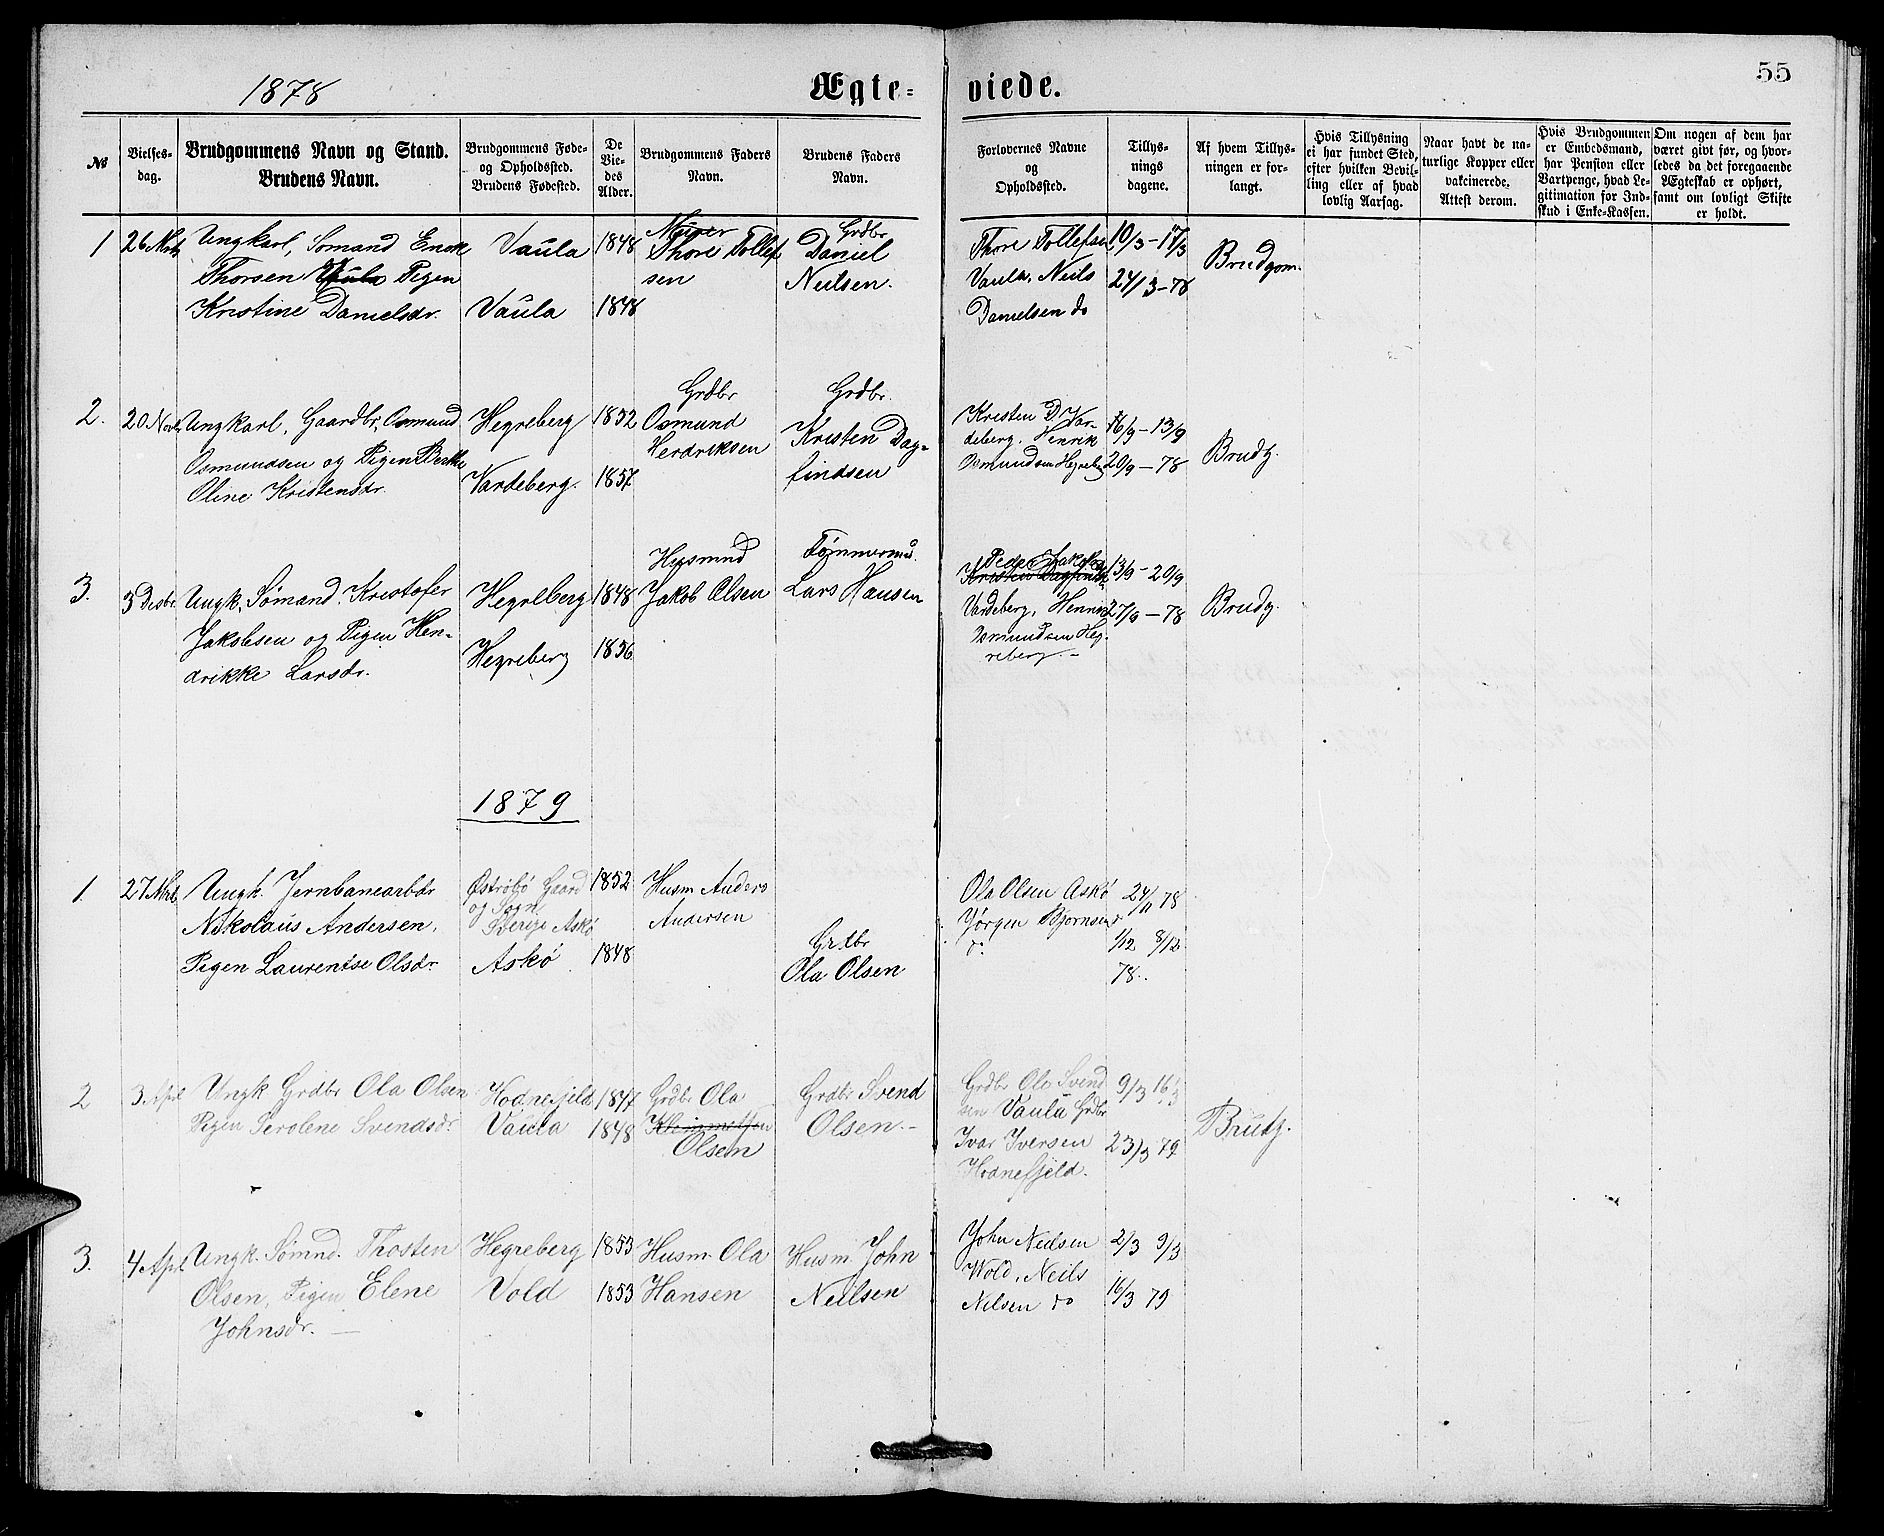 55
1878 Ægte- viede.
№
Vielses-
dag.
Brudgommens Navn og Stand.
Brudens Navn.
Brudgommens Føde-
og Opholdssted.
Brudens Fødested.
De
Vie-
des
Alder.
Brudgommens Faders
Navn.
Brudens Faders
Navn.
Forlovernes Navne
og
Opholdssted.
Tillys-
nings
dagene.
Af hvem Tillys-
ningen er for-
langt.
Hvis Tillysning
ei har fundet Sted,
efter hvilken Bevil-
ling eller af hvad
lovlig Aarsag.
Naar havt de na-
turlige Kopper eller
vakcinerede.
Attest derom.
Hvis Brudgommen
er Embedsmand,
har Pension eller
Vartpenge, hvad Le-
gitimation for Ind-
skud i Enke-Kassen.
Om nogen af dem har
været givt før, og hvor-
ledes da det foregaaende
Ægteskab er ophørt,
samt om lovligt Skifte
er holdt.
1
26 Marts
Ungkarl, Sømand Enok
Thorsen Vaula Pigen
Kristine Danielsdr.
Vaula
Vaula
1848
1848
Thore Tollef
sen
Grdbr
Daniel
Neilsen.
Thore Tollefsen
Vaula, Neils
Danielsen do
10/3-17/3
24/3-78
Brudgom.
2.
20 Novb
Ungkarl, Gaardbr, Osmund
Osmundsen og Pigen Berthe
Oline Kristensdr.
Hegreberg
Vardeberg.
1852
1857
Grdbr
Osmund
Hendriksen
Grdbr.
Kristen Dag-
findsen
Kristen D. Var-
deberg. Henrik
Osmundsen Hegreberg
6/9-13/9
20/9-78
Brudg.
3.
3 Desbr
Ungk. Sømand. Kristofer
Jakobsen og Pigen Hen-
drikke Larsdr.
Hegreberg
Hegreberg
1848
1856
Husmnd
Jakob Olsen
Tømmermd.
Lars Hansen
Peder Jakobs
Kristen Dagfinds
Vardeberg, Henrik
Osmundsen Heg-
reberg.-
13/9-20/9
27/9-78
Brudg.
1879
1.
27 Mrts
Ungk. Jernbanearbdr
Nikolaus Andersen,
Pigen Laurentse Olsdr
Østrøbø Gaard
og Sogn
Sverige Askø
Askø
1852
1848
Husm Anders
Andersen
Grdbr
Ola Olsen
Ola Olsen Askø
Jørgen Bjørnsen
do.
24/11 78
1/12 8/12
78.
2
3 April
Ungk Grdbr Ola Olsen
Pigen Serolene Svendsdr.
Hodnefjeld
Vaula
1847
1848
Grdbr Ola
Klemmetsen
Olsen
Grdbr Svend
Olsen.-
Grdbr Ole Svend
sen Vaula Grdbr
Ivar Iversen
Hodnefjeld.
9/3 16/3
23/3 79
Brudg.
3.
4 April
Ungk. Sømnd. Thosten
Olsen, Pigen Elene
Johnsdr. —
Hegreberg
Vold
1853
1853
Husm. Ola
Hansen
Husm. John
Neilsen
John Neilsen
Wold, Neils
Nilsen do
2/3 9/3
16/3 79